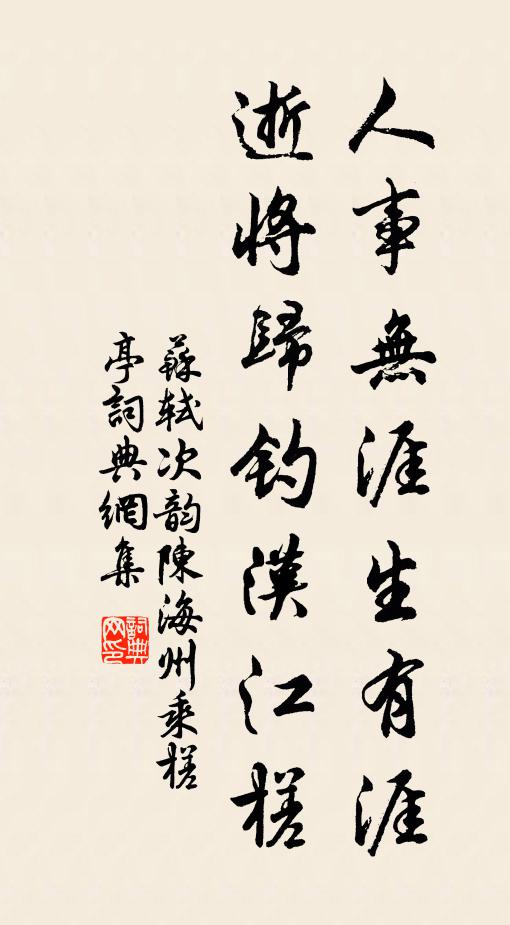 人事無涯生有涯
逝將歸釣漢江槎
蘇軾次韵陳海州乘槎
亭詞典網集
詞典
网印